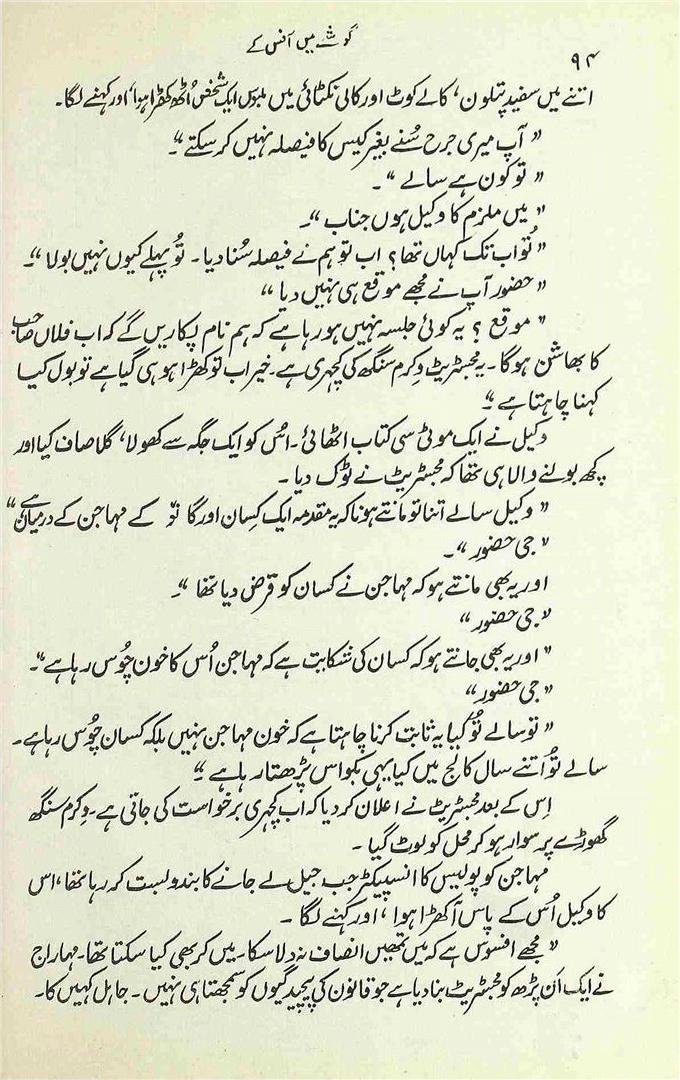 ۹۴
گوشے میں قفس کے
اتنے میں سفید پتلون، کالے کوٹ اور کالی نکٹائی میں ملبوس ایک شخص اُٹھ کھڑا ہوا، اور کہنے لگا۔
" آپ میری جرح سُنے بغیر کیس کا فیصلہ نہیں کر سکتے "۔
" تو کون ہے سالے "۔
" میں ملزم کا وکیل ہوں جناب "۔
" تُو اب تک کہاں تھا؟ اب تو ہم نے فیصلہ سُنا دیا۔ تُو پہلے کیوں نہیں بولا "۔
" حضور آپ نے مجھے موقع ہی نہیں دیا "
" موقع ؟ یہ کوئی جلسہ نہیں ہو رہا ہے کہ ہم نام پکاریں گے کہ اب فلاں صاحب
کا بھاشن ہوگا۔ یہ مجسٹریٹ وکرم سنگھ کی کچہری ہے۔ خیر اب تو کھڑا ہو ہی گیا ہے تو بول کیا
کہنا چاہتا ہے "۔
وکیل نے ایک موٹی سی کتاب اٹھائی۔ اُس کو ایک جگہ سے کھولا، گلا صاف کیا اور
کچھ بولنے والا ہی تھا کہ مجسٹریٹ نے ٹوک دیا۔
" وکیل سالے اتنا تو مانتے ہو نا کہ یہ مقدمہ ایک کسان اور گانو کے مہاجن کے درمیان ہے "
" جی حضور "۔
اور یہ بھی مانتے ہو کہ مہاجن نے کسان کو قرض دیا تھا "۔
" جی حضور "
" اور یہ بھی جانتے ہو کہ کسان کی شکایت ہے کہ مہاجن اُس کا خون چُوس رہا ہے "۔
" جی حضور "
" تو سالے تُو کیا یہ ثابت کرنا چاہتا ہے کہ خون مہاجن نہیں بلکہ کسان چُوس رہا ہے۔
سالے تُو اتنے سال کالج میں کیا یہی بکواس پڑھتا رہا ہے "۔
اِس کے بعد مجسٹریٹ نے اعلان کر دیا کہ اب کچہری برخواست کی جاتی ہے۔ وکرم سنگھ
گھوڑے پر سوار ہو کر محل کو لوٹ گیا۔
مہاجن کو پولیس کا انسپیکٹر جب جیل لے جانے کا بندوبست کر رہا تھا، اس
کا وکیل اُس کے پاس آ کھڑا ہوا، اور کہنے لگا۔
" مجھے افسوس ہے کہ میں تمھیں انصاف نہ دلا سکا۔ میں کر بھی کیا سکتا تھا۔ مہاراج
نے ایک اَن پڑھ کو مجسٹریٹ بنا دیا ہے جو قانون کی پیچیدگیوں کو سمجھتا ہی نہیں۔ جاہل کہیں کا۔